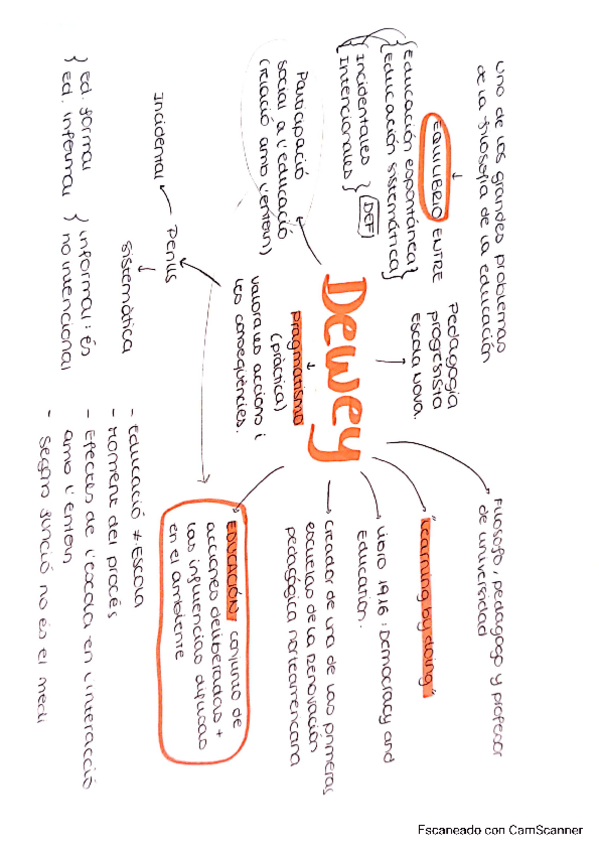 Uno de los grandes problemas
de la filosofía de la educación
EQUILIBRIO ENTRE
{ Educación espontánea }
{ Educación sistemática }
{ Incidentales }
{ Intencionales }
DEF
Participació
social a l'educació
(relació amb l'entorn)
Pedagogia
progresista
Escola Nova.
Dewey
pragmatismo
(pràctica)
valora les accions i
les conseqüències.
Filósofo, pedagogo y profesor
de universidad
"Learning by doing"
Libro 1916: Democracy and
Education.
Creador de una de las primeras
escuelas de la renovación
pedagógica norteamericana
EDUCACIÓN: conjunto de
acciones deliberadas +
las influencias difusas
en el ambiente
Incidental
sistemàtica
} ed. formal
} ed. informal
} informal: és
no intencional
- Educació ≠ Escola
- Moment del procés
- Efectes de l'escola en l'interacció
amb l'entorn
- Segons funció no és el medi
Escaneado con CamScanner